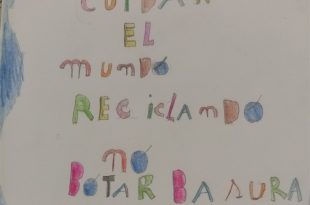 CUIDAR
EL
mundo
RECiclanDO
no
BOTAR BASURA